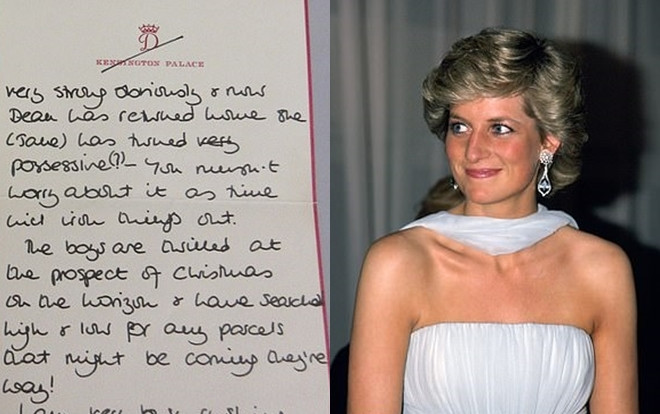 D
KENSINGTON PALACE
very strong obviously & now
Dean has returned home she
(Jane) has turned very
possessive(?!) - You mustn't
worry about it as time
will iron things out.
The boys are thrilled at
the prospect of Christmas
on the horizon & have searched
high & low for any parcels
that might be coming they're
way!